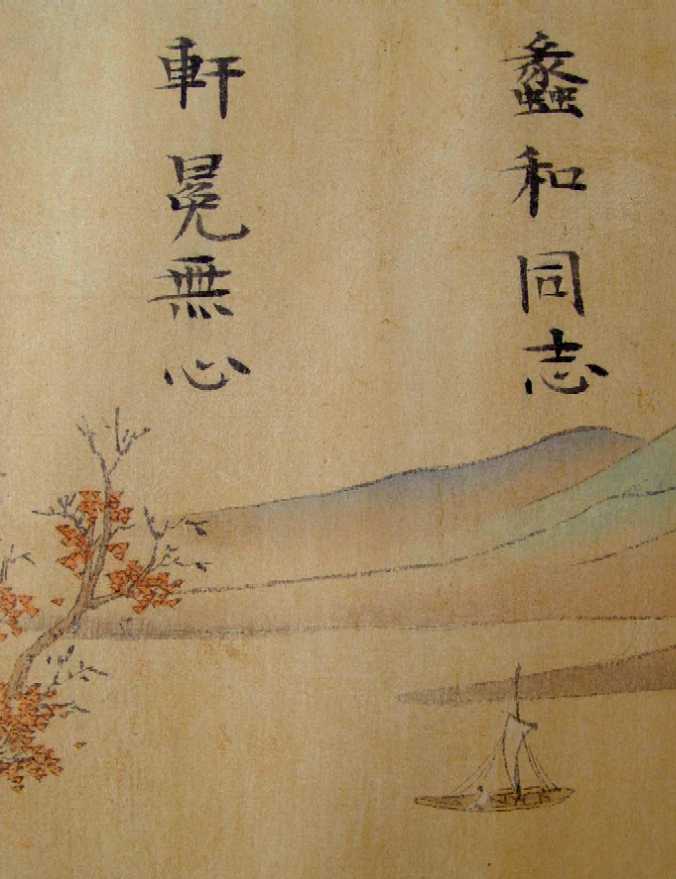 蠡和同志
軒冕無心